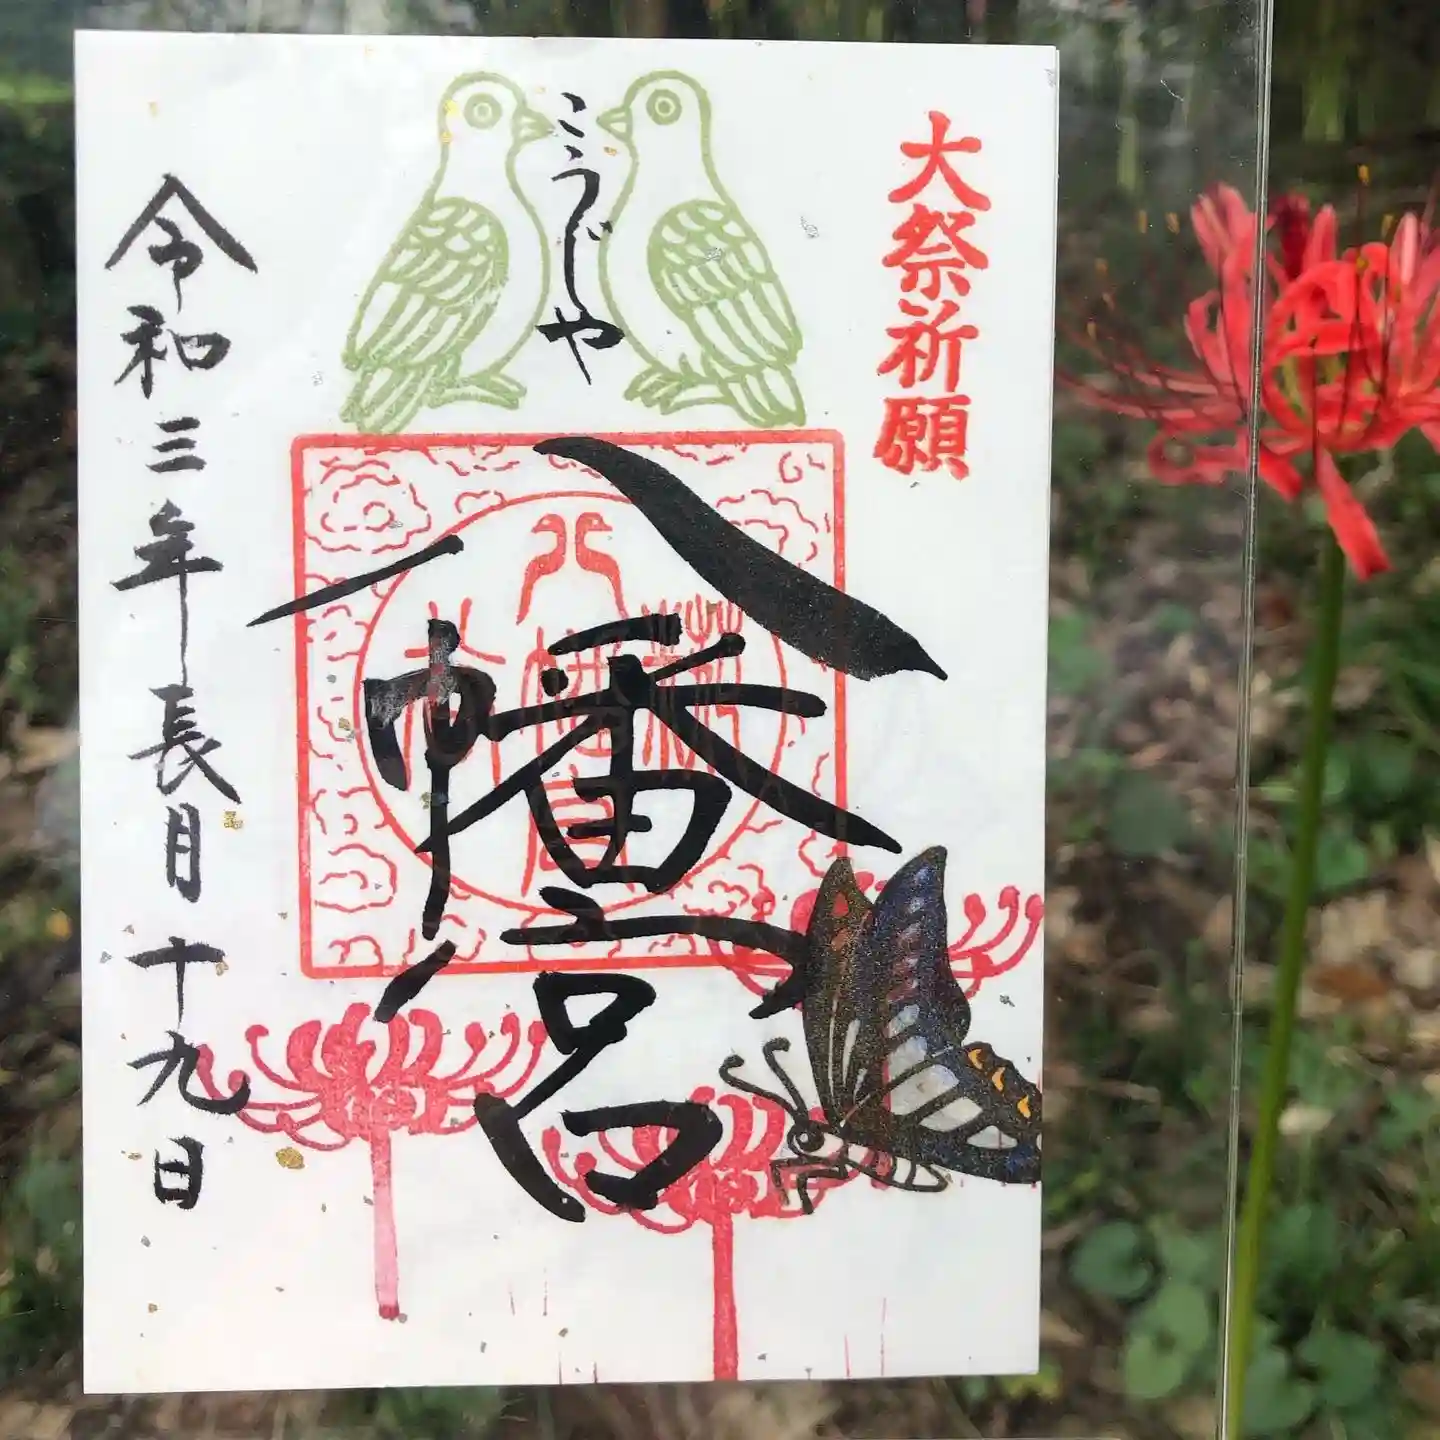 大祭祈願
こうじや
八幡宮
令和三年長月十九日